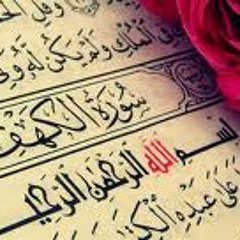 وَقُلِ الْحَ
فِى الْمُلْكِ وَلَمْ يَكُنْ لَهُ وَلِىٌّ
سُورَةُ الْكَهْفِ
سْمِ اللَّهِ الرَّحْمَٰنِ الرَّحِيمِ
عَلَىٰ عَبْدِهِ الْكِتَ